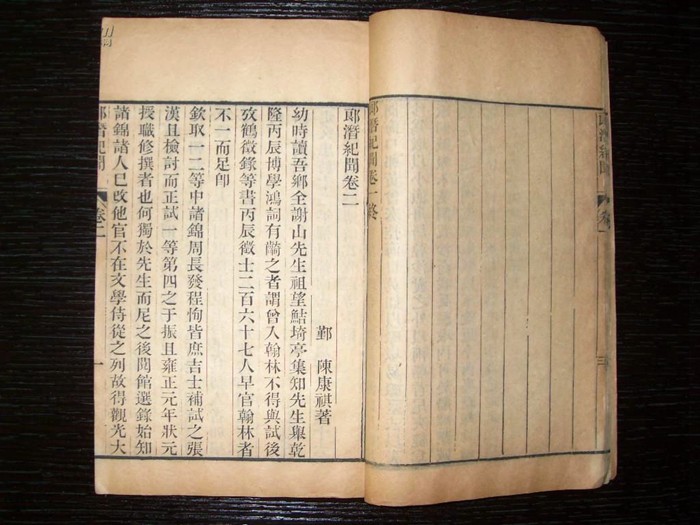 郞潛紀聞
卷一
郞潛紀聞卷一終
郞潛紀聞卷二
鄞 陳康祺著
幼時讀吾鄉全謝山先生祖望鮚埼亭集知先生舉乾
隆丙辰博學鴻詞有齮之者謂曾入翰林不得與試後
攷鶴徵錄等書丙辰徵士二百六十七人早官翰林者
不一而足卽
欽取一二等中諸錦周長發程恂皆庶吉士補試之張
漢且檢討而正試一等第四之于振且雍正元年狀元
授職修撰者也何獨於先生而尼之後閱館選錄始知
諸錦諸人已改他官不在文學侍從之列故得觀光大
郞潛紀聞
卷二
一